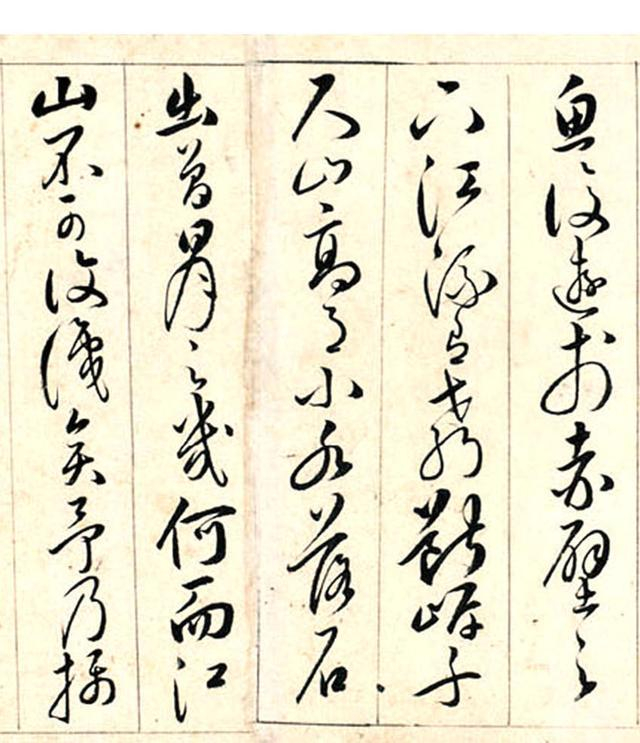 魚復遊於赤壁之
下江流有聲斷岸千
尺山高月小水落石
出曾日月之幾何而江
山不可復識矣予乃攝